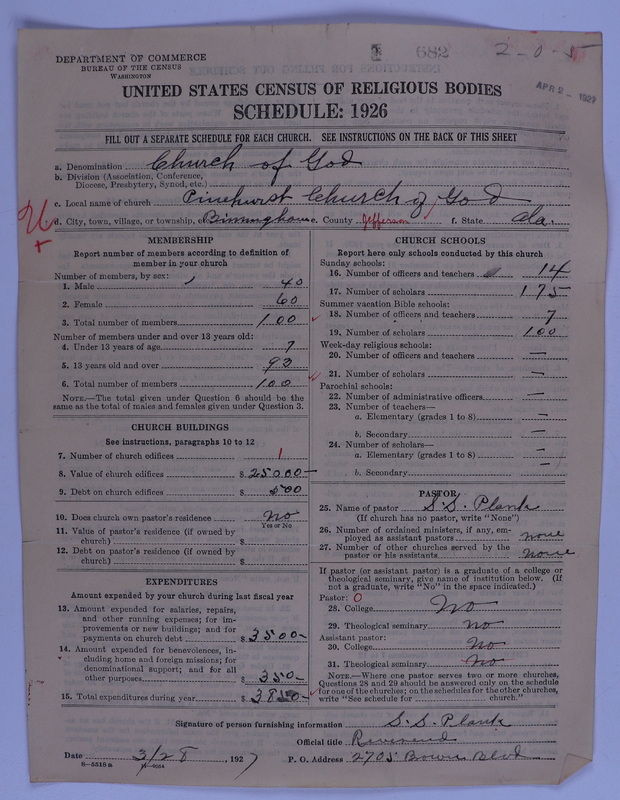 DEPARTMENT OF COMMERCE
BUREAU OF THE CENSUS
WASHINGTON
1 682 2-0-15
APR 2 - 1927
UNITED STATES CENSUS OF RELIGIOUS BODIES
SCHEDULE: 1926
FILL OUT A SEPARATE SCHEDULE FOR EACH CHURCH. SEE INSTRUCTIONS ON THE BACK OF THIS SHEET
a. Denomination Church of God
b. Division (Association, Conference,
Diocese, Presbytery, Synod, etc.)
c. Local name of church Pinehurst Church of God
d. City, town, village, or township, etc. Birmingham e. County Jefferson f. State Ala.
MEMBERSHIP
Report number of members according to definition of
member in your church
Number of members, by sex:
1. Male 40
2. Female 60
3. Total number of members 100
Number of members under and over 13 years old:
4. Under 13 years of age 7
5. 13 years old and over 93
6. Total number of members 100
NOTE.—The total given under Question 6 should be
same as the total of males and females given under Question 3.
CHURCH BUILDINGS
See instructions, paragraphs 10 to 12
7. Number of church edifices 1
8. Value of church edifices $25000-
9. Debt on church edifices $
10. Does church own pastor's residence no
Yes or No
11. Value of pastor's residence (if owned by
church) $
12. Debt on pastor's residence (if owned by
church) $
EXPENDITURES
Amount expended by your church during last fiscal year
13. Amount expended for salaries, repairs,
and other running expenses; for im-
provements or new buildings; and for
payments on church debt $3500-
14. Amount expended for benevolences, in-
cluding home and foreign missions; for
denominational support; and for all
other purposes $350-
15. Total expenditures during year $3850-
CHURCH SCHOOLS
Report here only schools conducted by this church
Sunday schools:
16. Number of officers and teachers 14
17. Number of scholars 175
Summer vacation Bible schools:
18. Number of officers and teachers 7
19. Number of scholars 100
Week-day religious schools:
20. Number of officers and teachers —
21. Number of scholars —
Parochial schools:
22. Number of administrative officers —
23. Number of teachers—
a. Elementary (grades 1 to 8) —
b. Secondary —
24. Number of scholars—
a. Elementary (grades 1 to 8) —
b. Secondary —
PASTOR
25. Name of pastor S.S. Plank
(If church has no pastor, write "None")
26. Number of ordained ministers, if any, em-
ployed as assistant pastors none
27. Number of other churches served by the
pastor or his assistants none
If pastor (or assistant pastor) is a graduate of a college or
theological seminary, give name of institution below. (If
not a graduate, write "No" in the space indicated.)
Pastor: 0
28. College No
29. Theological seminary no
Assistant pastor:
30. College No
31. Theological seminary no
NOTE.—Where one pastor serves two or more churches,
Questions 28 and 29 should be answered only on the schedule
for one of the churches; on the schedules for the other churches,
write "See schedule for church."
Signature of person furnishing information S.S. Plank
Official title Reverend
Date 3/28, 1927 P. O. Address 2705 Blvd
8-5518a 11-9054